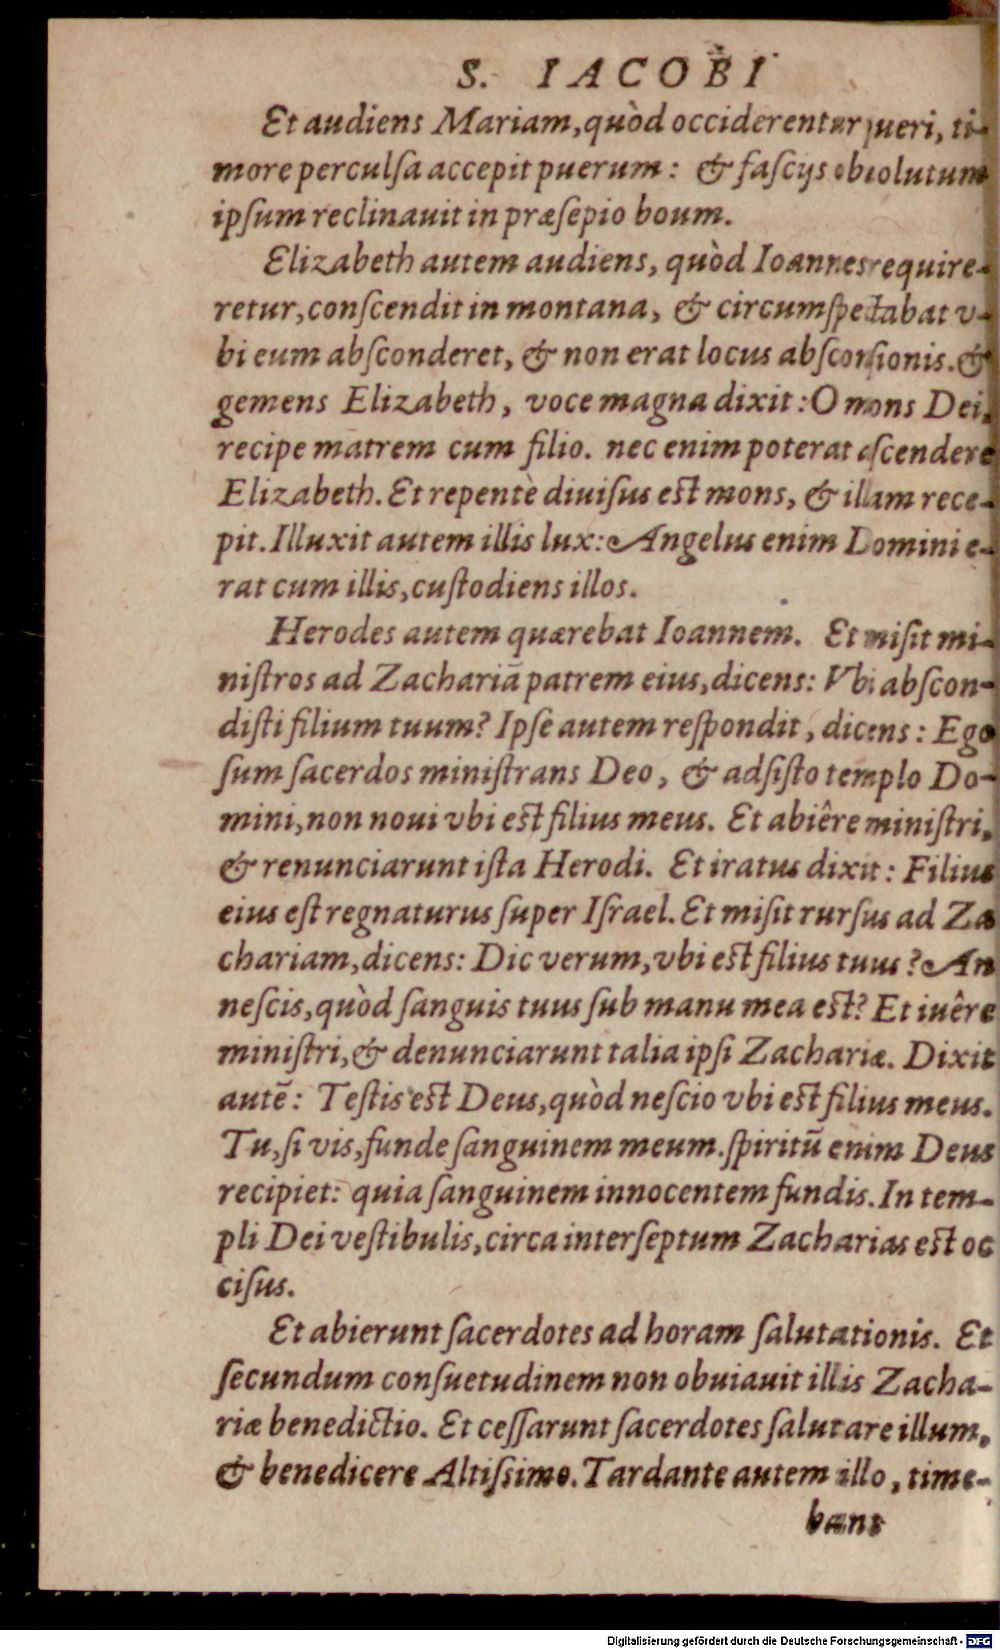 S. IACOBI
Et audiens Mariam, quòd occiderentur pueri, ti-
more perculſa accepit puerum: & faſcijs obuolutum
ipſum reclinauit in præſepio boum.
Elizabeth autem audiens, quòd Ioannes require-
retur, conſcendit in montana, & circumſpectabat v-
bi eum abſconderet, & non erat locus abſconſionis. &
gemens Elizabeth, voce magna dixit: O mons Dei,
recipe matrem cum filio. nec enim poterat aſcendere
Elizabeth. Et repentè diuiſus eſt mons, & illam rece-
pit. Illuxit autem illis lux: Angelus enim Domini e-
rat cum illis, cuſtodiens illos.
Herodes autem quærebat Ioannem. Et miſit mi-
niſtros ad Zachariā patrem eius, dicens: Vbi abſcon-
diſti filium tuum? Ipſe autem reſpondit, dicens: Ego
ſum ſacerdos miniſtrans Deo, & adſiſto templo Do-
mini, non noui vbi eſt filius meus. Et abiêre miniſtri,
& renunciarunt iſta Herodi. Et iratus dixit: Filius
eius eſt regnaturus ſuper Iſrael. Et miſit rurſus ad Za
chariam, dicens: Dic verum, vbi eſt filius tuus? An
neſcis, quòd ſanguis tuus ſub manu mea eſt? Et iuêre
miniſtri, & denunciarunt talia ipſi Zachariæ. Dixit
autē: Teſtis eſt Deus, quòd neſcio vbi eſt filius meus.
Tu, ſi vis, funde ſanguinem meum. ſpiritū enim Deus
recipiet: quia ſanguinem innocentem fundis. In tem-
pli Dei veſtibulis, circa interſeptum Zacharias eſt oc
ciſus.
Et abierunt ſacerdotes ad horam ſalutationis. Et
ſecundum conſuetudinem non obuiauit illis Zacha-
riæ benedictio. Et ceſſarunt ſacerdotes ſalutare illum,
& benedicere Altiſsimo. Tardante autem illo, time-
bant
Digitalisierung gefördert durch die Deutsche Forschungsgemeinschaft - DFG